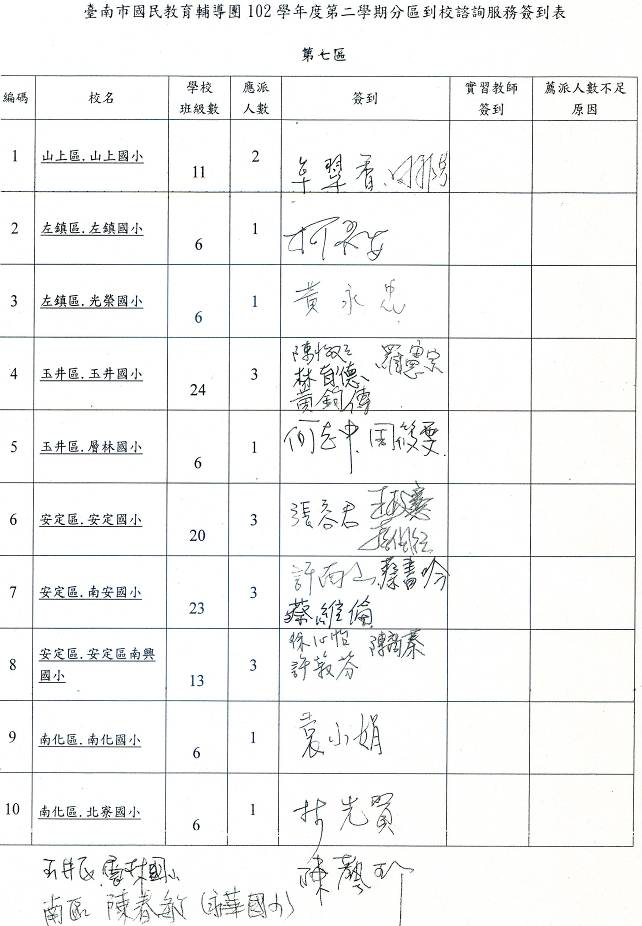 臺南市國民教育輔導團 102 學年度第二學期分區到校諮詢服務簽到表
第七區
編碼 校名 學校班級數 應派人數 簽到 實習教師簽到 薦派人數不足原因
1 山上區.山上國小 11 2
2 左鎮區.左鎮國小 6 1
3 左鎮區.光榮國小 6 1 黃永忠
4 玉井區.玉井國小 24 3 羅憲宗
林自德
黃鈞傳
5 玉井區.層林國小 6 1 何志中
6 安定區.安定國小 20 3 張容君
7 安定區.南安國小 23 3 許南山 蔡書吟
蔡維倫
8 安定區.安定區南興國小 13 3 徐心怡
許毅芬
9 南化區.南化國小 6 1 袁小娟
10 南化區.北寮國小 6 1 林先買
玉井區 層林國小 陳
南區 陳春敏 (永華國小)